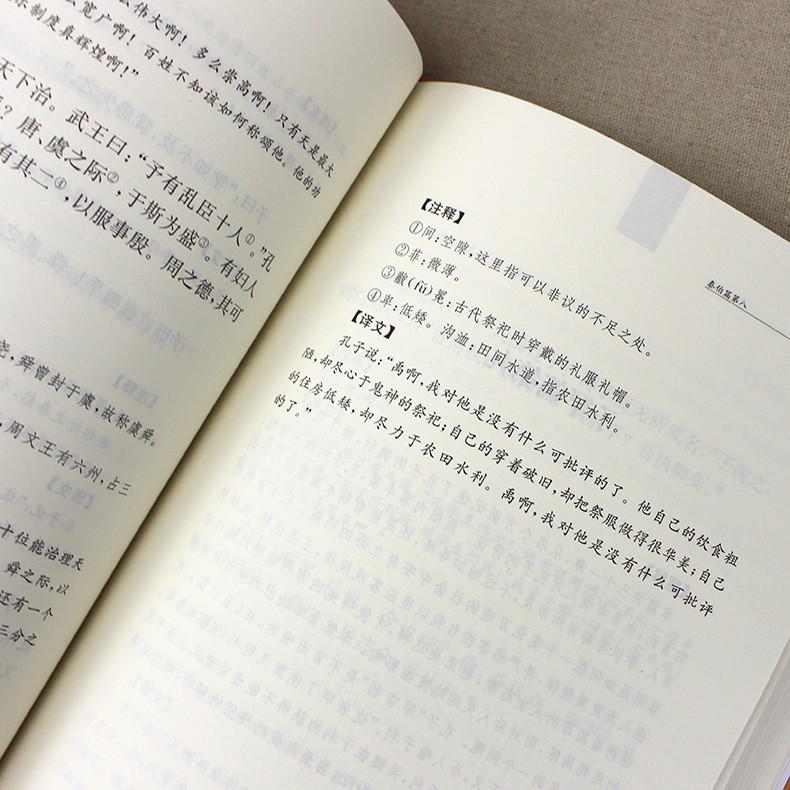 么伟大啊！多么崇高啊！只有天是最大
么宽广啊！百姓不知该如何称颂他。他的功
制度真辉煌啊！”
天下治。武王曰：“予有乱臣十人①。”孔
？唐、虞之际②，于斯为盛③。有妇人
有其二④，以服事殷。周之德，其可
尧，舜曾封于虞，故称虞舜。
周文王有六州，占三
十位能治理天
舜之际，以
还有一个
三分之
泰伯篇第八
【注释】
①间：空隙，这里指可以非议的不足之处。
②菲：微薄。
③黻（fú）冕：古代祭祀时穿戴的礼服礼帽。
④卑：低矮。沟洫：田间水道，指农田水利。
【译文】
孔子说：“禹啊，我对他是没有什么可批评的了。他自己的饮食粗
陋，却尽心于鬼神的祭祀；自己的穿着破旧，却把祭服做得很华美；自己
的住房低矮，却尽力于农田水利。禹啊，我对他是没有什么可批评
的了。”